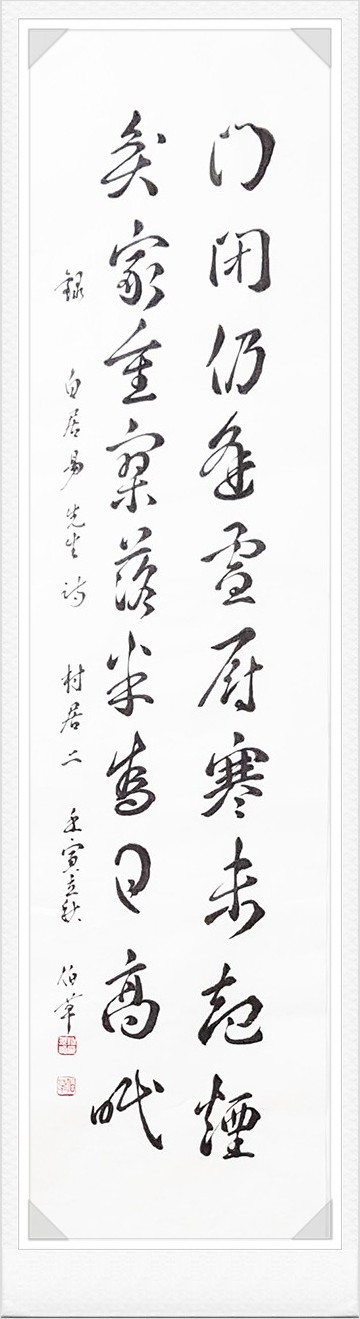 门闭仍逢雪厨寒未起煙
贫家重寥落半为日高眠
録 白居易先生诗 村居二 壬寅立秋